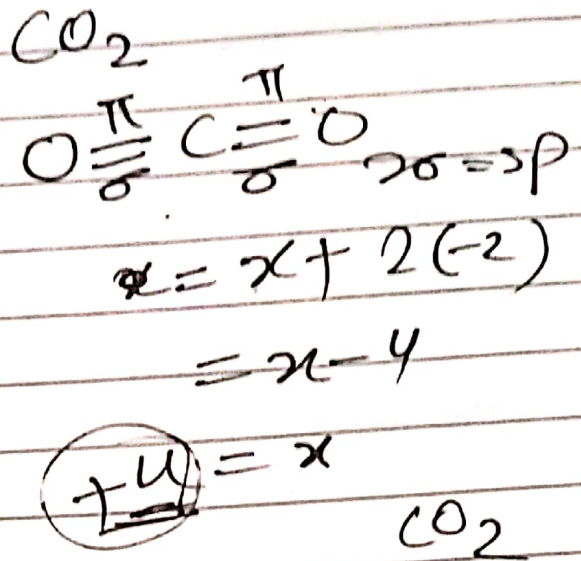 CO₂
π π
O≡C≡O 2σ=sp
σ σ
x = x + 2(-2)
= x - 4
+4 = x
CO₂